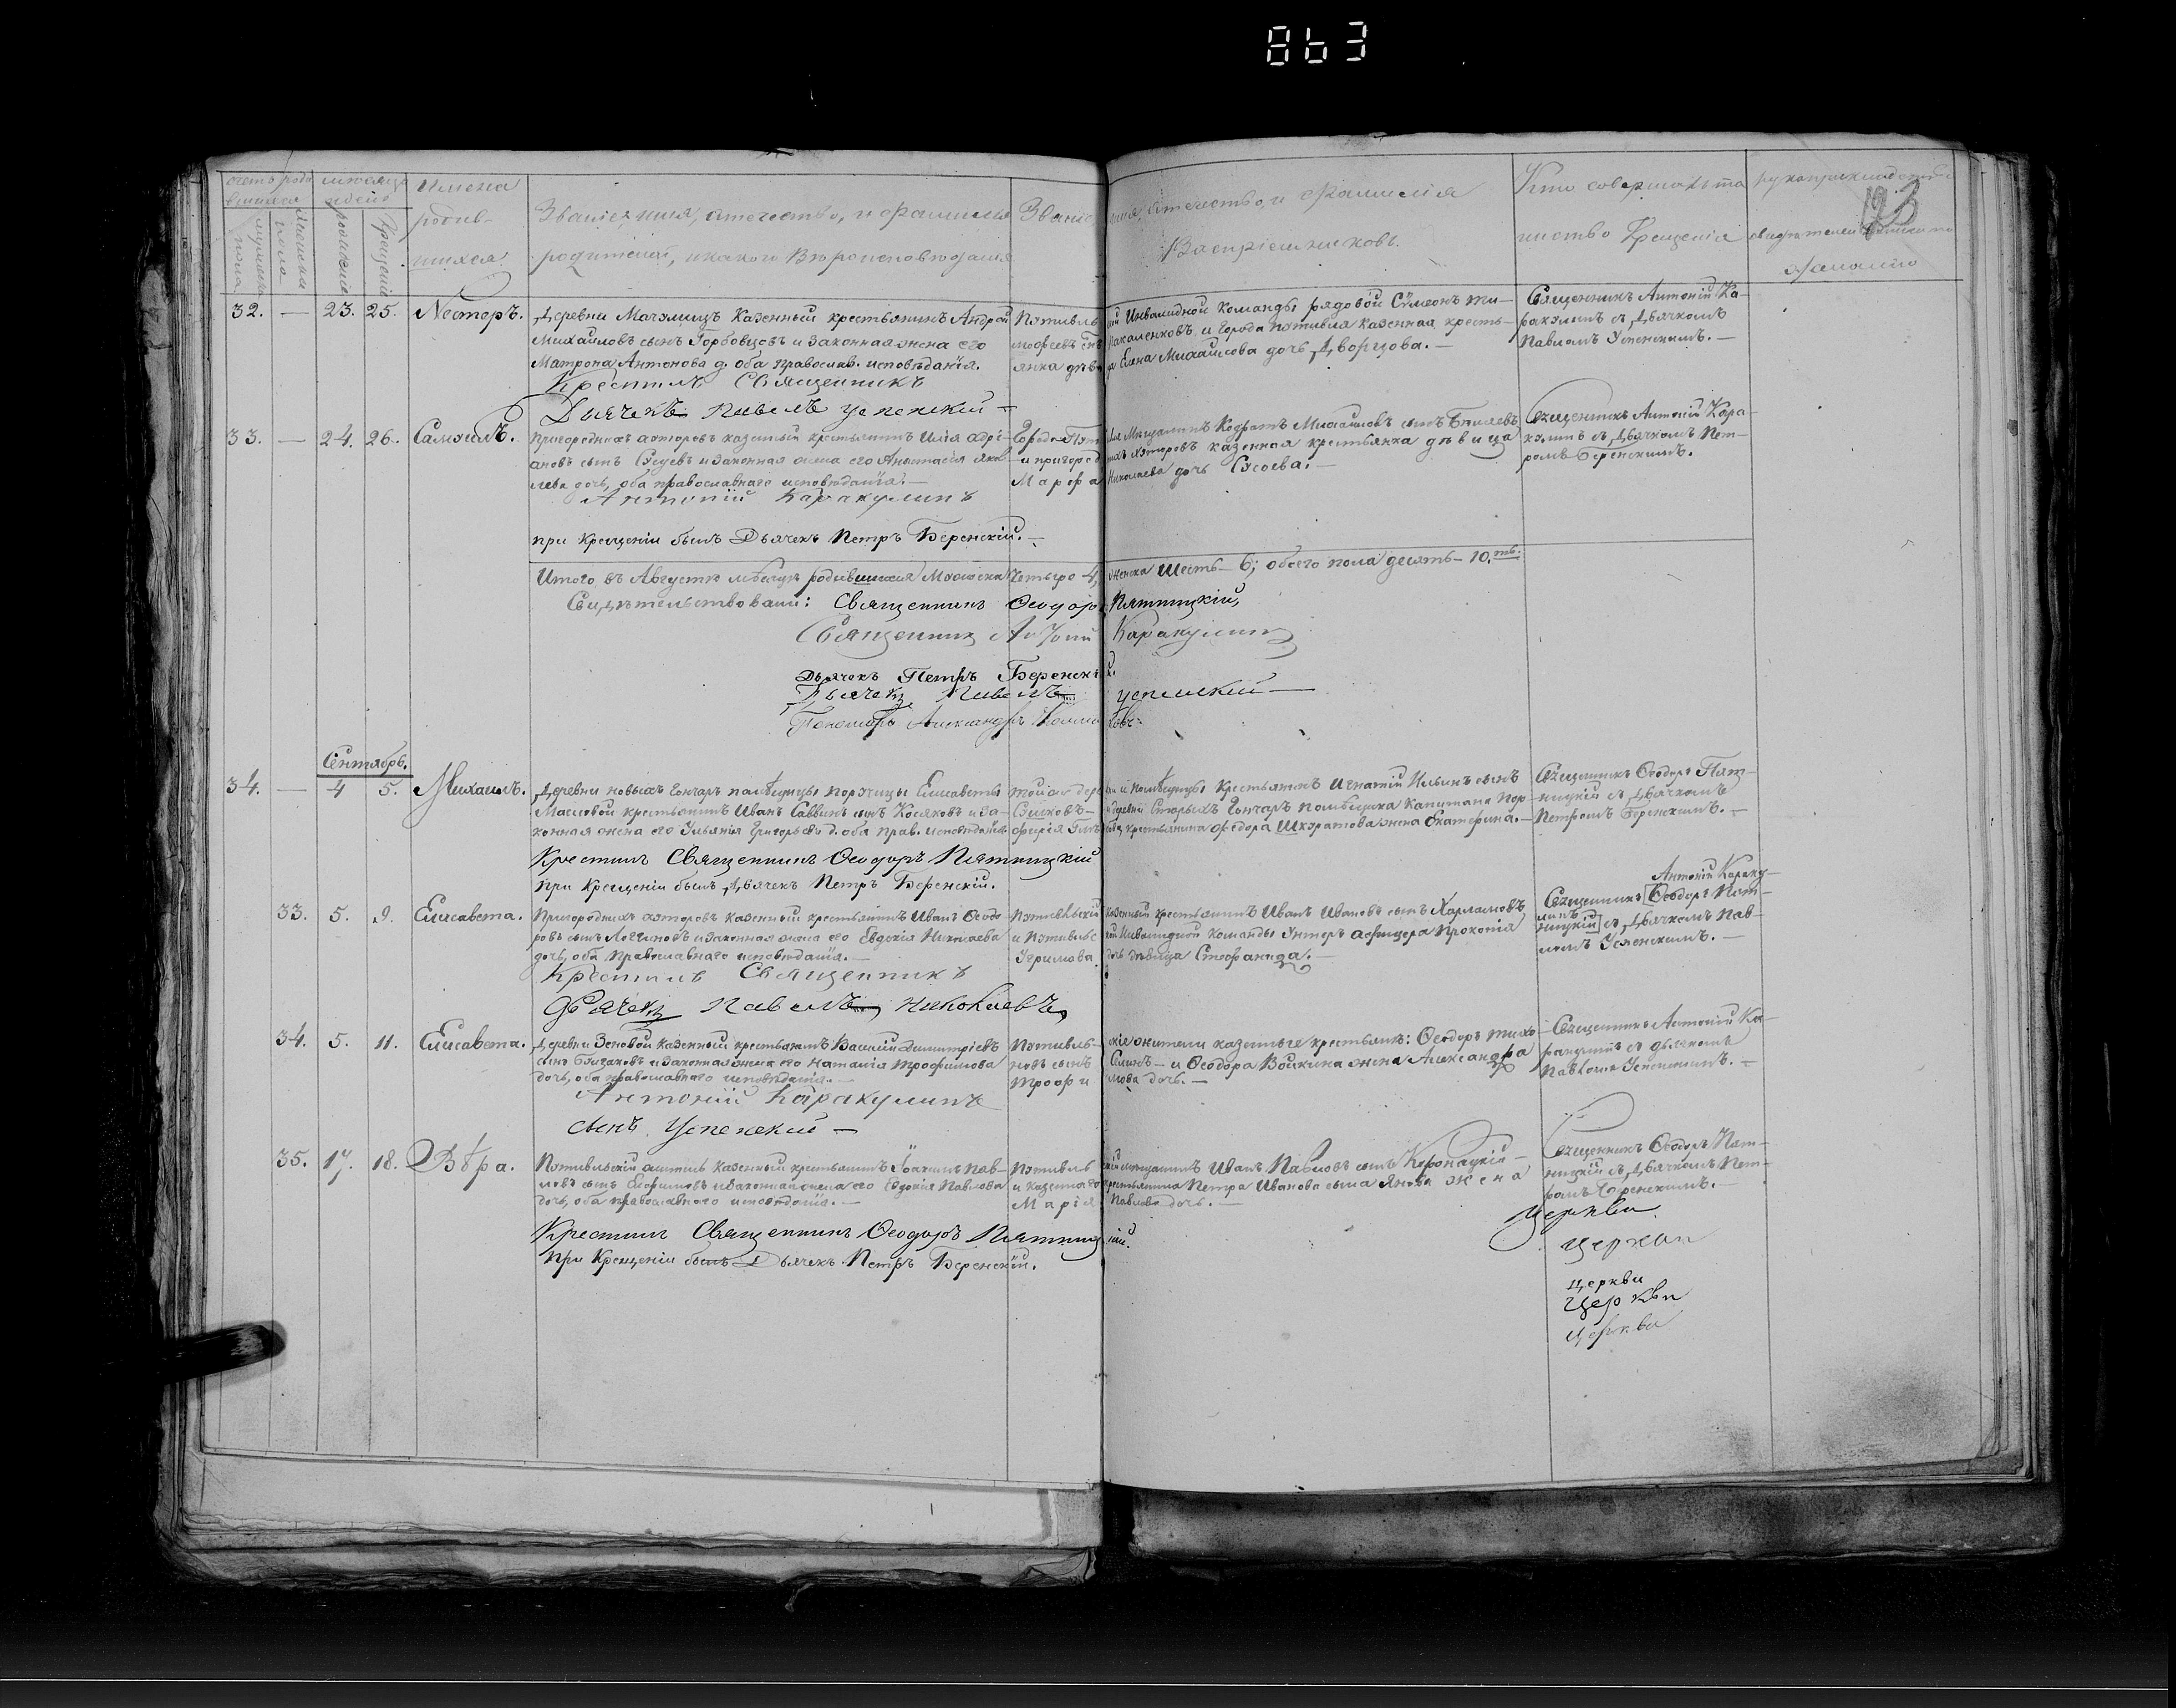 863
123
счетъ родившихся
мѣсяцъ и день
Имена родившихся
Званіе, имя, отечество, и фамилія родителей, и какого вѣроисповѣданія
Званіе, имя, отечество, и фамилія Воспріемниковъ.
Кто совершалъ таинство Крещенія
рукоприкладство свидѣтелей записи по желанію
мужеска пола
женска пола
рожденія
крещенія
32. — 23. 25. Несторъ.
Деревни Мачулищъ казенный крестьянинъ Андрей
Михайловъ сынъ Горбовцовъ и законная жена его
Матрона Антонова д. оба православ. исповѣданія.
Крестилъ Священникъ
Дьячекъ Павелъ Успенскій —
Путивльской Инвалидной команды рядовой Сѵмеонъ Ти-
мофеевъ снъ и Города Путивля казенная кресть-
янка дѣвица Елена Михайлова дочь Дворцова. —
Священникъ Антоній Ка-
ракулинъ съ Дьячкомъ
Павломъ Успенскимъ. —
33. — 24. 26. Самуилъ.
Пригородныхъ хуторовъ казенный крестьянинъ Илія Адрі-
ановъ сынъ и законная жена его Анастасія Яков-
лева дочь, оба православнаго исповѣданія. —
Антоній Каракулинъ
при крещеніи былъ Дьячекъ Петръ Беренскій. —
Города Путивля Мѣщанинъ Кодратъ Михайловъ сынъ Бѣляевъ
и пригородныхъ хуторовъ казенная крестьянка дѣвица
Марфа Николаева дочь Сысоева. —
Священникъ Антоній Кара-
кулинъ съ Дьячкомъ Пет-
ромъ Беренскимъ.
Итого въ Августѣ мѣсяцѣ родившихся Мужеска Четыре 4, женска шесть — 6; обоего пола десять — 10.ть.
Свидѣтельствовали: Священникъ Ѳеодоръ Пятницкій,
Священникъ Антоній Каракулинъ
Дьячекъ Петръ Беренскій.
Дьячекъ Павелъ Успенскій —
Пономарь Александръ
Сентябрь.
34. — 4 5. Михаилъ.
Деревни новыхъ Гончаръ помѣщицы поручицы Елисаветы
Масловой крестьянинъ Иванъ Саввинъ сынъ Косяковъ и за-
конная жена его Ульянія Григорьева д. оба прав. исповѣданія
Крестилъ Священникъ Ѳеодоръ Пятницкій
при крещеніи былъ Дьячекъ Петръ Беренскій.
той же деревни и помѣщицы крестьянинъ Игнатій Ильинъ сынъ
и деревни Старыхъ Гончаръ помѣщика Капитана Пор-
крестьянина Федора Шкуратова жена Екатерина. —
Священникъ Ѳеодоръ Пят-
ницкій съ Дьячкомъ
Петромъ Беренскимъ. —
33. 5. 9. Елисавета.
Пригородныхъ хуторовъ казенный крестьянинъ Иванъ Ѳеодо-
ровъ сынъ Логгиновъ и законная жена его Евдокія Николаева
дочь, оба православнаго исповѣданія. —
Крестилъ Священникъ
Дьячекъ Павелъ Николаевъ
Путивльскій казенный крестьянинъ Иванъ Ивановъ сынъ Харламовъ
и Путивльской Инвалидной команды Унтеръ афицера Прокопія
дочь дѣвица Стефанида. —
Антоній Караку-
Священникъ [Ѳеодоръ Пят-
линъ
ницкій] съ Дьячкомъ Пав-
ломъ Успенскимъ. —
34. 5. 11. Елисавета.
Деревни Зеновой казенный крестьянинъ Василій Димитріевъ
сынъ и законная жена его Наталія Трофимова
дочь, оба православнаго исповѣданія. —
Антоній Каракулинъ
сынъ Успенскій —
Путивльскіе жители казенные крестьяне: Ѳеодоръ Тихо-
новъ сынъ — и Ѳеодора Войкина жена Александра
Трофимова дочь. —
Священникъ Антоній Ка-
ракулинъ съ дьячкомъ
Павломъ Успенскимъ. —
35. 17. 18. Вѣра.
Путивльскій житель казенный крестьянинъ Іоакимъ Пав-
ловъ сынъ и законная жена его Евдокія Павлова
дочь, оба православнаго исповѣданія. —
Крестилъ Священникъ Ѳеодоръ Пятницкій.
При крещеніи былъ Дьячекъ Петръ Беренскій.
Путивльскій мѣщанинъ Иванъ Павловъ сынъ —
и казеннаго крестьянина Петра Иванова сына жена
Марія Павлова дочь. —
Священникъ Ѳеодоръ Пят-
ницкій съ Дьячкомъ Пет-
ромъ Беренскимъ. —
Церкви
Церкви
Церкви
Церкви
Церкви